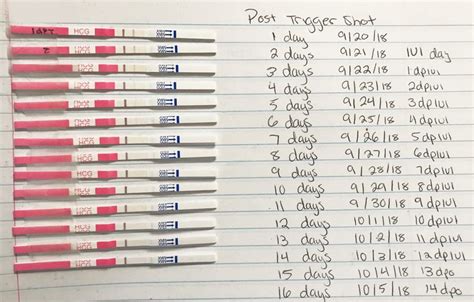 Post Trigger Shot
1dpt HCG
1 day 9/20/18
2 HCG
2 days 9/21/18 IUI day
3 days 9/22/18 1dpiui
4 days 9/23/18 2dpiui
5 days 9/24/18 3dpiui
6 days 9/25/18 4dpiui
7 days 9/26/18 5dpiui
8 days 9/27/18 6dpiui
9 days 9/28/18 7dpiui
10 days 9/29/18 8dpiui
11 days 9/30/18 9dpiui
12 days 10/1/18 10dpiui
13 days 10/2/18 11dpiui
14 days 10/3/18 12dpiui
15 days 10/4/18 13dpo
16 days 10/5/18 14dpo